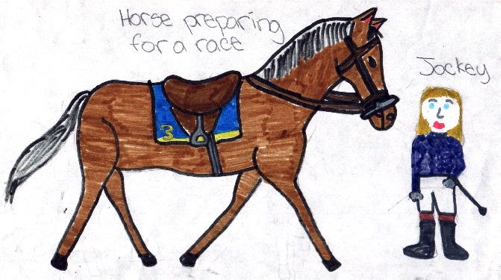 Horse preparing
for a race
Jockey
3